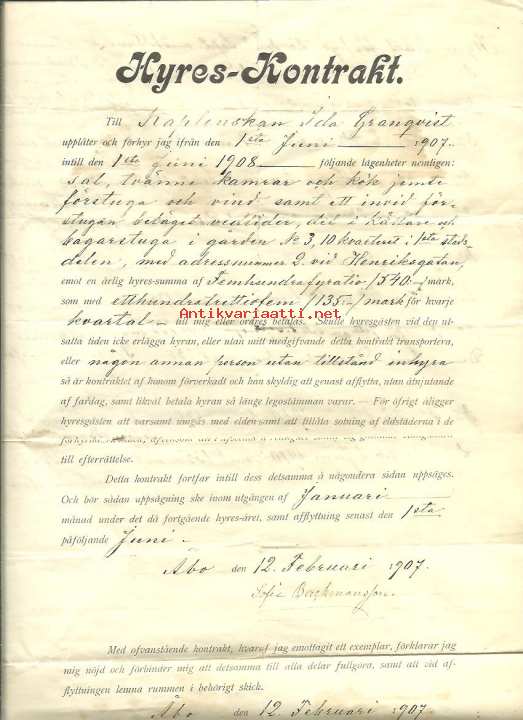 Hyres-Kontrakt.
Till Kaptenskan Ida Granqvist
upplåter och förhyr jag ifrån den 1sta Juni 1907.
intill den 1sta Juni 1908 följande lägenheter nemligen:
sal, tvänne kamrar och kök jemte
förstuga och vind samt ett invid för-
stugan beläget vedlider, del i källare och
bagarstuga i gården No 3, 10 kvarteret i 1sta stads-
delen, med adressnummer 2. vid Henriksgatan,
emot en årlig hyres-summa af Femhundrafyratio /540:-/ mark,
som med etthundratrettiofem /135-/ mark för hvarje
kvartal till mig eller ordres betalas. Skulle hyresgästen vid den ut-
Antikvariaatti.net
satta tiden icke erlägga hyran, eller utan mitt medgifvande detta kontrakt transportera,
eller någon annan person utan tillstånd inhyra
så är kontraktet af honom förverkadt och han skyldig att genast afflytta, utan åtnjutande
af fardag, samt likväl betala hyran så länge legostämman varar. — För öfrigt åligger
hyresgästen att varsamt umgås med elden samt att tillåta sotning af eldstäderna i de
till efterrättelse.
Detta kontrakt fortfar intill dess detsamma å någondera sidan uppsäges.
Och bör sådan uppsägning ske inom utgången af Januari
månad under det då fortgående hyres-året, samt afflyttning senast den 1sta
påföljande Juni.
Åbo den 12. Februari 1907.
Sofie Backmansson.
Med ofvanstående kontrakt, hvaraf jag emottagit ett exemplar, förklarar jag
mig nöjd och förbinder mig att detsamma till alla delar fullgöra, samt att vid af-
flyttningen lemna rummen i behörigt skick.
Åbo den 12. Februari 1907.